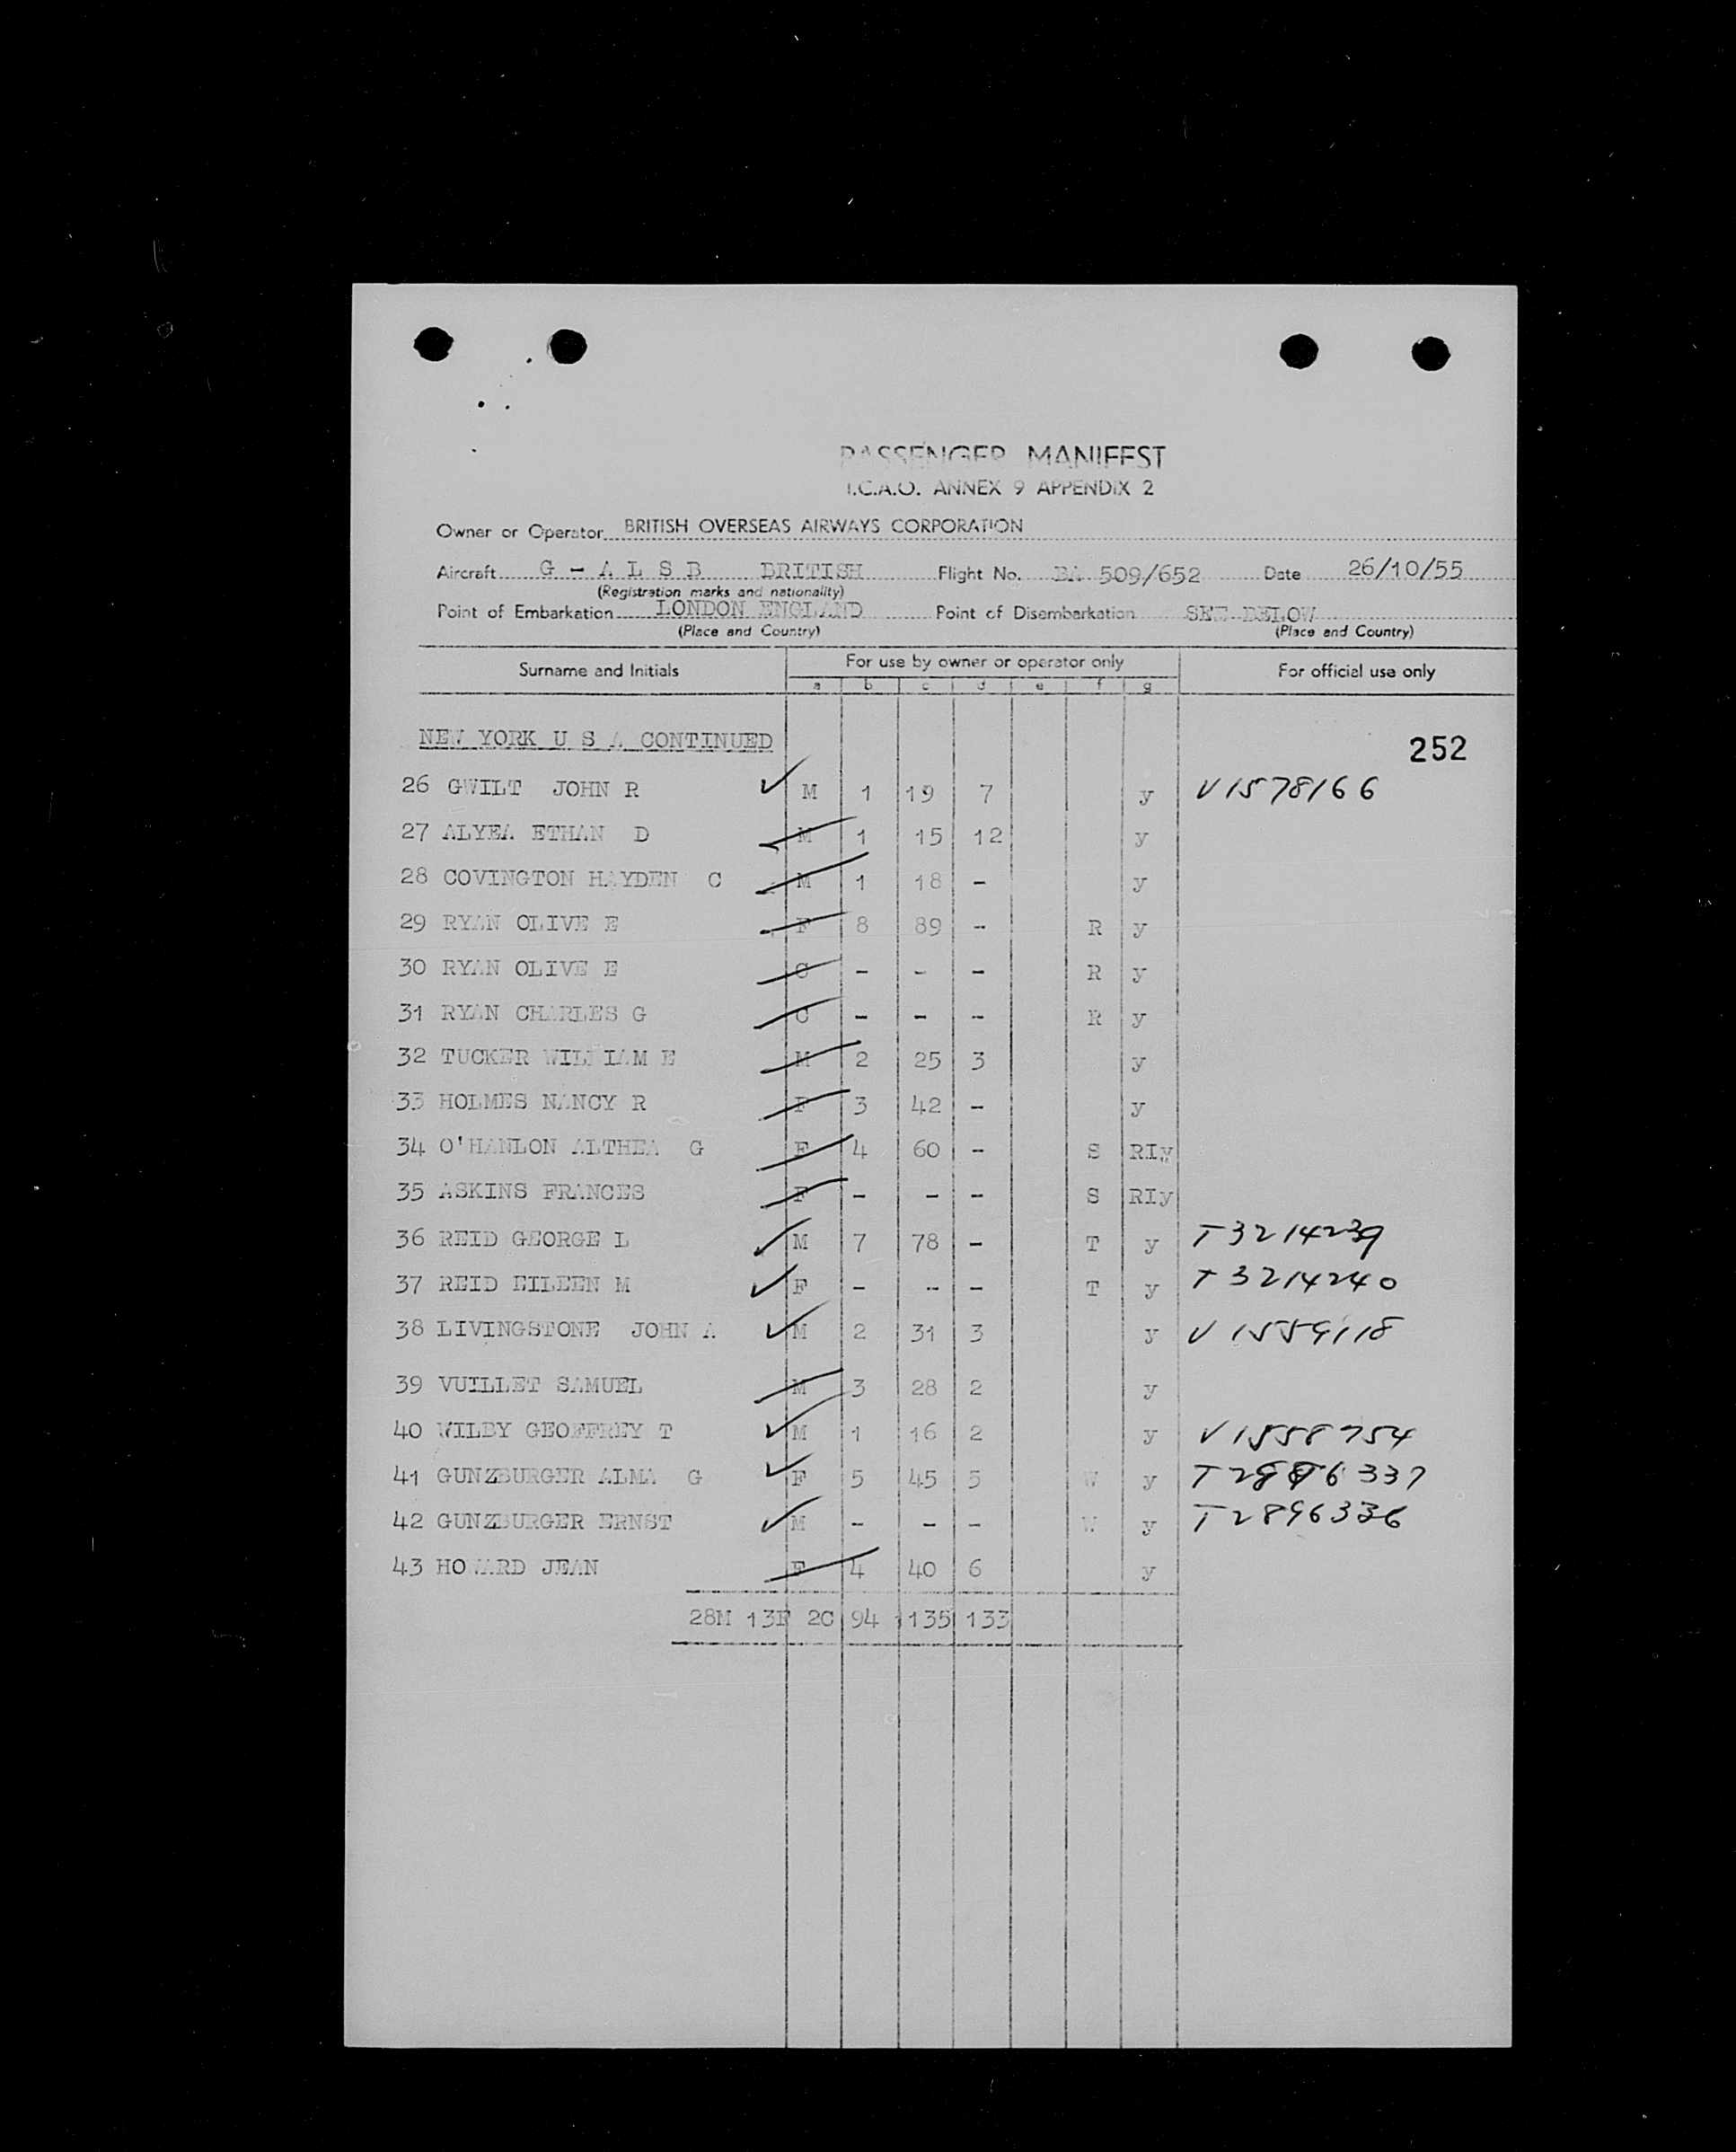 PASSENGER MANIFEST
I.C.A.O. ANNEX 9 APPENDIX 2
Owner or Operator BRITISH OVERSEAS AIRWAYS CORPORATION
Aircraft G - A L S B BRITISH Flight No. BA 509/652 Date 26/10/55
(Registration marks and nationality)
Point of Embarkation LONDON ENGLAND Point of Disembarkation SEE BELOW
(Place and Country) (Place and Country)
Surname and Initials For use by owner or operator only For official use only
a b c d e f g
NEW YORK U S A CONTINUED 252
26 GWILT JOHN R M 1 19 7 y V1578166
27 ALYEA ETHAN D M 1 15 12 y
28 COVINGTON HAYDEN C M 1 18 - y
29 RYAN OLIVE E F 8 89 - R y
30 RYAN OLIVE E C - - - R y
31 RYAN CHARLES G C - - - R y
32 TUCKER WILLIAM E M 2 25 3 y
33 HOLMES NANCY R F 3 42 - y
34 O'HANLON ALTHEA G F 4 60 - S RIy
35 ASKINS FRANCES F - - - S RIy
36 REID GEORGE L M 7 78 - T y T3214239
37 REID EILEEN M F - - - T y T3214240
38 LIVINGSTONE JOHN A M 2 31 3 y V1559118
39 VUILLET SAMUEL M 3 28 2 y
40 WILBY GEOFFREY T M 1 16 2 y V1558754
41 GUNZBURGER ALMA G F 5 45 5 W y T2896337
42 GUNZBURGER ERNST M - - - W y T2896336
43 HOWARD JEAN F 4 40 6 y
28M 13F 2C 94 1135 133